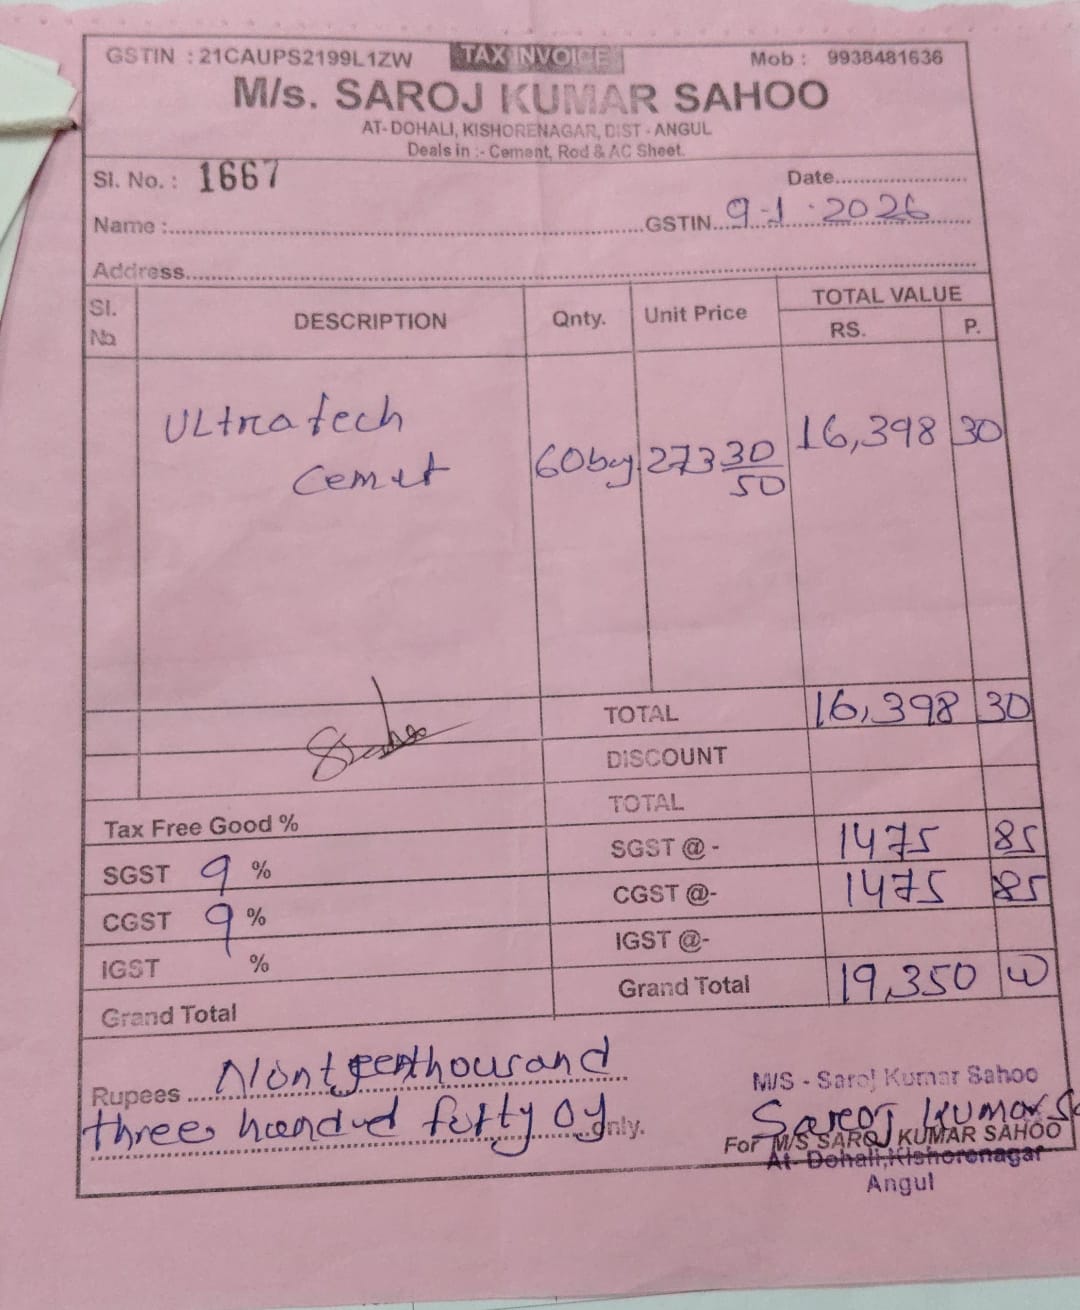 GSTIN : 21CAUPS2199L1ZW TAX INVOICE Mob : 9938481636
M/s. SAROJ KUMAR SAHOO
AT- DOHALI, KISHORENAGAR, DIST - ANGUL
Deals in :- Cement, Rod & AC Sheet.
Sl. No. : 1667 Date....................
Name :.................... GSTIN... 9-1-2026
Address....................
Sl. No DESCRIPTION Qnty. Unit Price TOTAL VALUE
RS. P.
ULtratech 16,398 30
Cemet 60bag 273 30/50
TOTAL 16,398 30
Sahoo DISCOUNT
Tax Free Good % TOTAL
SGST 9 % SGST @ - 1475 85
CGST 9 % CGST @- 1475 85
IGST % IGST @-
Grand Total Grand Total 19,350 00
Rupees Ninteenthousand
three hundred fifty only.
M/S - Saroj Kumar Sahoo
Saroj Kumar Sa
For M/S SAROJ KUMAR SAHOO
At- Dohali,Kishorenagar
Angul